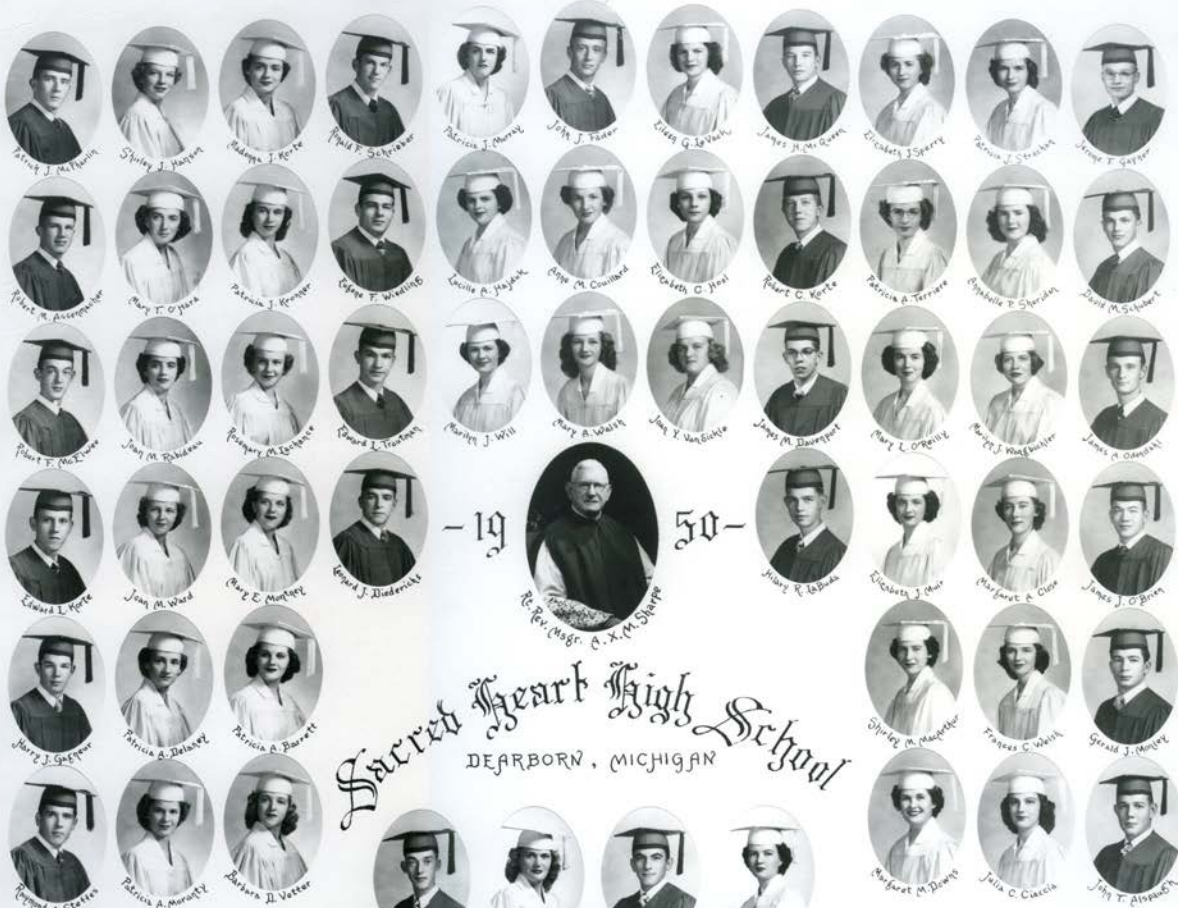 Patrick J. McPharlin
Shirley J. Hanson
Madonna J. Korte
Ronald F. Schrieber
Patricia J. Murray
John J. Fader
Eileen G. LeVach
James H. McQueen
Elizabeth J. Sperry
Patricia J. Strachan
Jerome T. Gaynor
Robert M. Assenmacher
Mary T. O'Hara
Patricia J. Kronner
Eugene F. Wiedling
Lucille A. Hajduk
Anne M. Couillard
Elizabeth C. Hoel
Robert C. Korte
Patricia A. Terriere
Annabelle P. Sheridan
David M. Schubert
Robert F. McElwee
Joan M. Rabideau
Rosemary M. Lachance
Edward L. Troutman
Marilyn J. Will
Mary A. Walsh
Joan Y. VanSickle
James M. Davenport
Mary L. O'Reilly
Marilyn J.
James A. Odendahl
Edward L. Korte
Joan M. Ward
Mary E. Montney
Leonard J. Diedericks
-19 50-
Rt. Rev. Msgr. A. X. M. Sharpe
Hilary R. LaBuda
Elizabeth J. Muir
Margaret A. Close
James J. O'Brien
Harry J. Gagneur
Patricia A. Delaney
Patricia A. Barrett
Shirley M. MacArthur
Frances C. Welsh
Gerald J. Monley
Sacred Heart High School
DEARBORN, MICHIGAN
Raymond J. Steffes
Patricia A. Moranty
Barbara D. Vetter
Margaret M. Downs
Julia C. Ciaccia
John T. Alspaugh